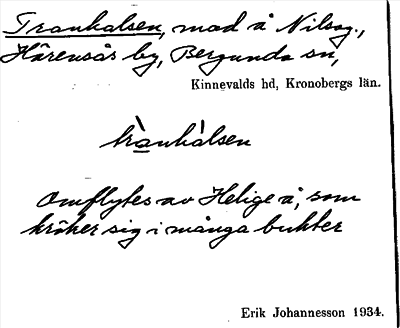 Trankalsen, mad å Nilsag.,
Härensås by, Bergunda sn,
Kinnevalds hd, Kronobergs län.
trànkàlsen
Omflytes av Helige å, som
kröker sig i många bukter
Erik Johannesson 1934.